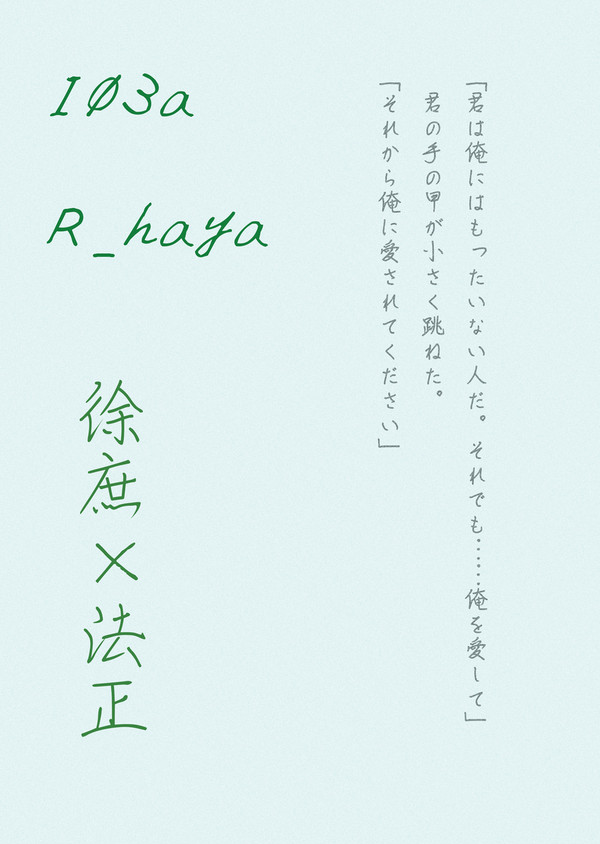 IØ3a
R_haya
徐庶×法正
「君は俺にはもったいない人だ。それでも……俺を愛して」
君の手の甲が小さく跳ねた。
「それから俺に愛されてください」